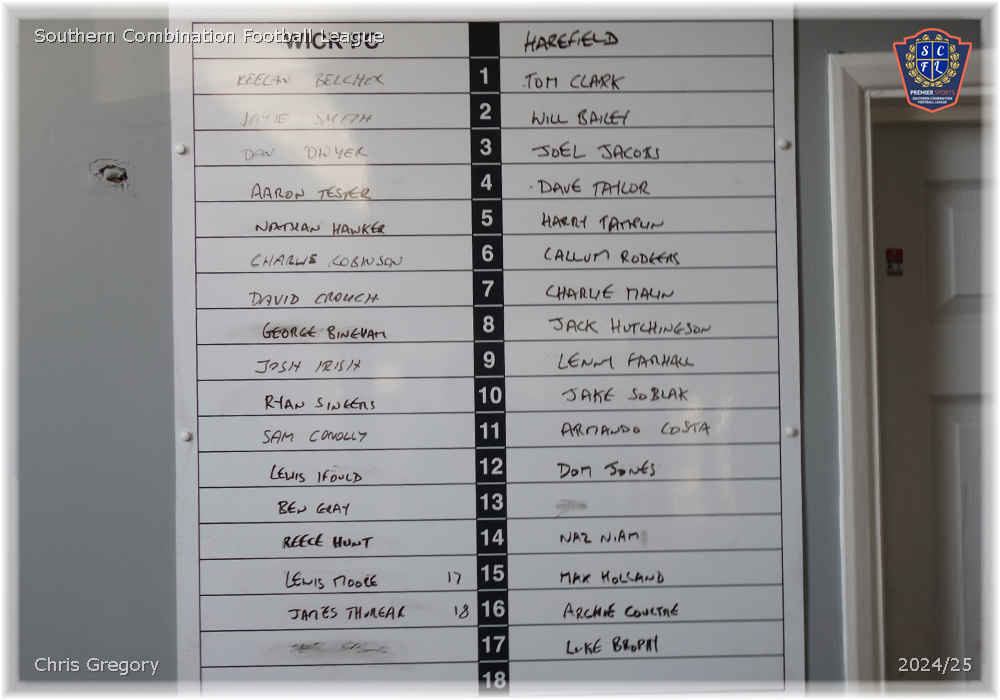 Southern Combination Football League
WICK FC HAREFIELD
KEELAN BELCHER 1 TOM CLARK
JAMIE SMITH 2 WILL BAILEY
DAN DWYER 3 JOEL JACOBS
AARON TESTER 4 DAVE TAYLOR
NATHAN HAWKER 5 HARRY TAMPLIN
CHARLIE ROBINSON 6 CALLUM RODGERS
DAVID CROUCH 7 CHARLIE MALIN
GEORGE BINGHAM 8 JACK HUTCHINGSON
JOSH IRISH 9 LENNY FARHALL
RYAN SINGERS 10 JAKE SOBLAK
SAM CONOLLY 11 ARMANDO COSTA
LEWIS IFOULD 12 DOM JONES
BEN GRAY 13
REECE HUNT 14 NAZ NIAM
LEWIS MOORE 17 15 MAX HOLLAND
JAMES THUREAR 18 16 ARCHIE COULTRE
17 LUKE BROPHY
18
S C
F L
PREMIER SPORTS
SOUTHERN COMBINATION
FOOTBALL LEAGUE
Chris Gregory
2024/25